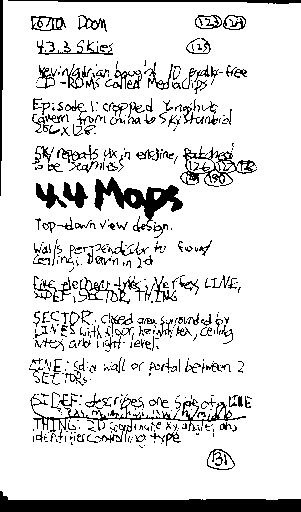 Doom (123) (124)
4.3.3 Skies (125)
Kevin/Adrian bought 10 royalty-free
CD-ROMs called Mediaclips
Episode 1: cropped Yangshuo
cavern from china to sky standard
256x128.
Sky repeats 4x in engine,
to be seamless (126) (127) (128)
4.4 Maps
Top-down view design.
Walls perpendicular to floors/
ceilings. Drawn in 2d
Five element types: Vertex, LINE,
SIDEF, SECTOR, THING
SECTOR: closed area surrounded by
LINES with floor, height, tex, ceiling
tex and light level.
LINE: solid wall or portal between 2
SECTORs.
SIDEF: describes one side of a LINE
THING: 2D coordinate xy, angle, and
identifier controlling type
(131)